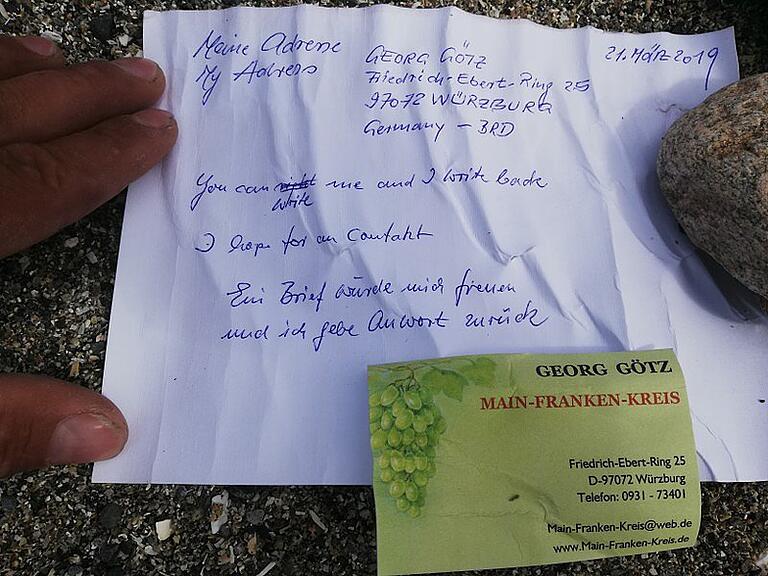 Meine Adresse
My Adress
GEORG GÖTZ
Friedrich-Ebert-Ring 25
97072 WÜRZBURG
Germany - BRD
21. MÄRZ 2019
You can right me and I write back
write
I hope for an Contakt
Ein Brief würde mich freuen
und ich gebe Anwort zurück
GEORG GÖTZ
MAIN-FRANKEN-KREIS
Friedrich-Ebert-Ring 25
D-97072 Würzburg
Telefon: 0931 - 73401
Main-Franken-Kreis@web.de
www.Main-Franken-Kreis.de